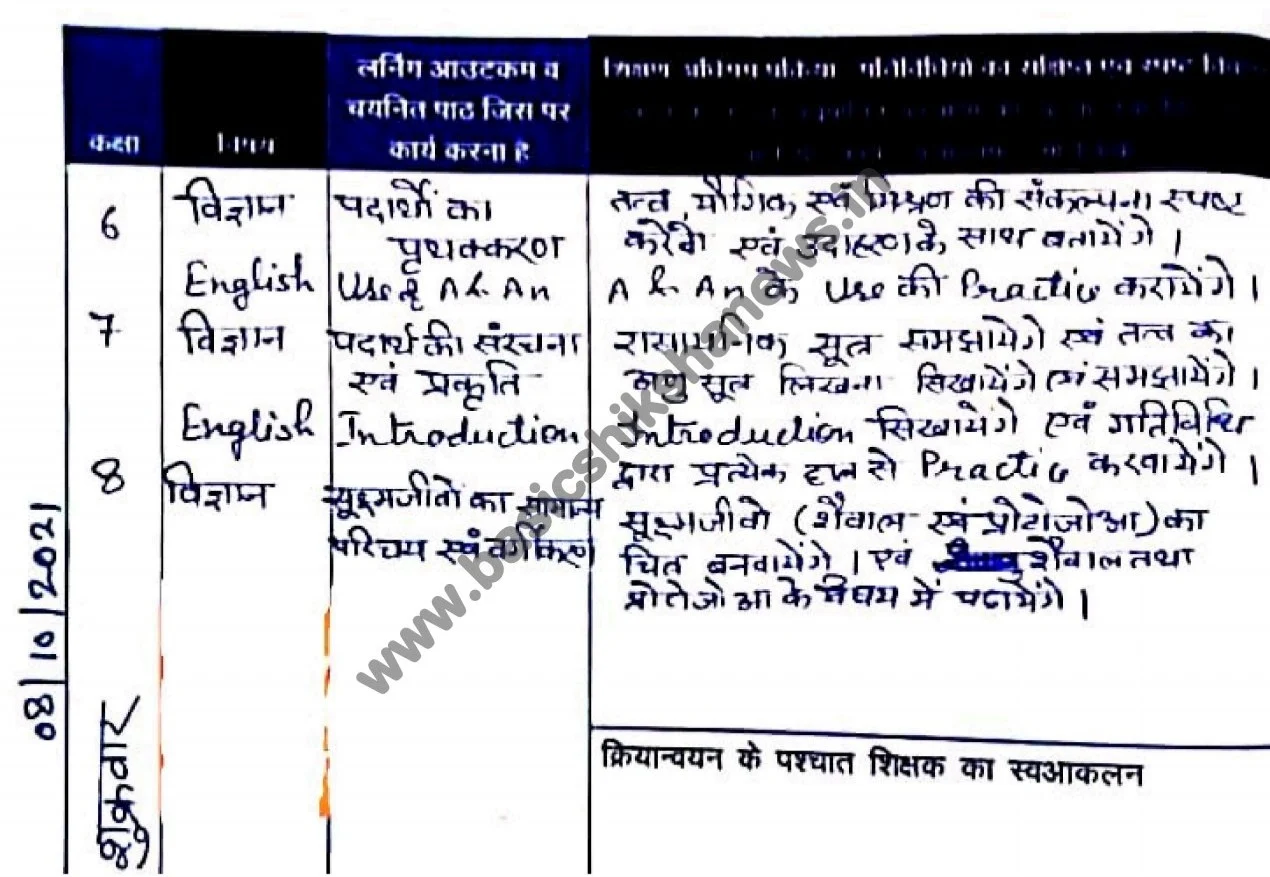 कक्षा
विषय
लर्निंग आउटकम व
चयनित पाठ जिस पर
कार्य करना है
शिक्षण अधिगम प्रक्रिया
6
विज्ञान
पदार्थो का
पृथक्करण
तत्व, यौगिक एवं मिश्रण की संकल्पना स्पष्ट
करेंगे एवं उदाहरण के साथ बतायेंगे।
English
Use of A & An
A & An के Use की Practic करायेंगे।
7
विज्ञान
पदार्थ की संरचना
एवं प्रकृति
रासायनिक सूत्र समझायेगे एवं तत्व का
अणु सूत्र लिखना सिखायेंगे एवं समझायेंगे।
English
Introduction
Introduction सिखायेंगे एवं गतिविधि
द्वारा प्रत्येक छात्र से Practic करवायेंगे।
8
विज्ञान
सूक्ष्मजीवो का सामान्य
परिचय एवं वर्गीकरण
सूक्ष्मजीवो (शैवाल एवं प्रोटोजोआ) का
चित्र बनवायेंगे। एवं शैवाल तथा
प्रोटोजोआ के विषय में पढायेंगे।
08/10/2021
शुक्रवार
क्रियान्वयन के पश्चात शिक्षक का स्वआकलन
www.basicshikshanews.in